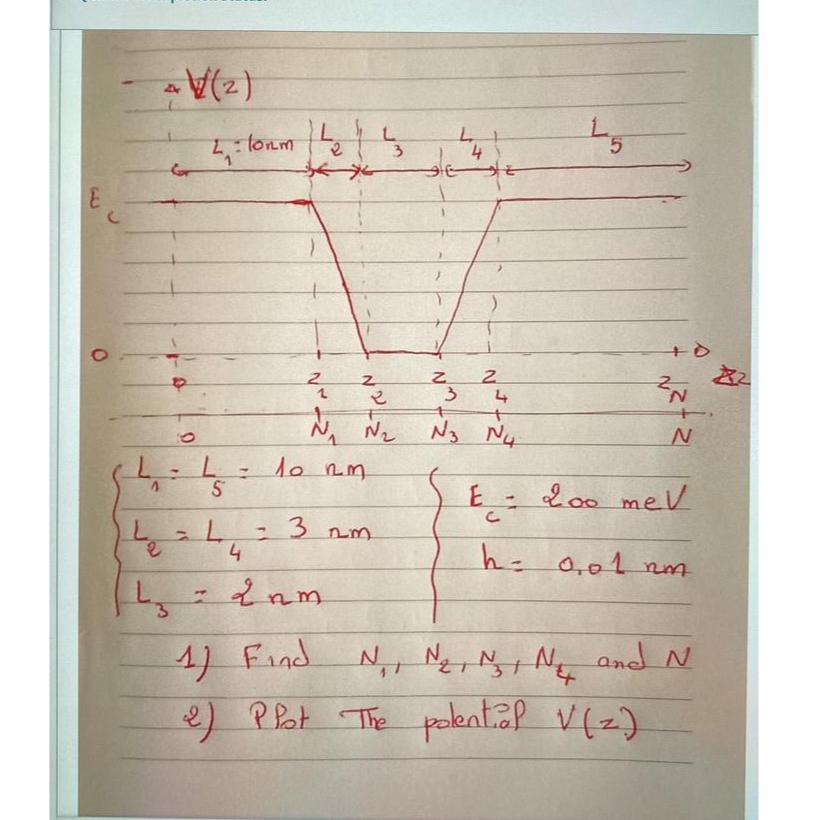 V(z)
L1 = 10nm L2 L3 L4 L5
Ec
0
0 z1 z2 z3 z4 zN z
0 N1 N2 N3 N4 N
L1 = L5 = 10 nm
Ec = 200 meV
L2 = L4 = 3 nm
h = 0,01 nm
L3 = 2 nm
1) Find N1, N2, N3, N4 and N
2) Plot The potential V(z)